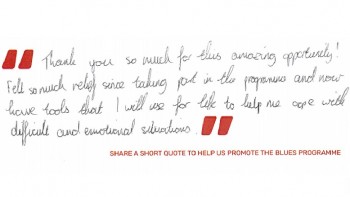 Thank you so much for this amazing opportunity!
Felt so much relief since taking part in the programme and now
have tools that I will use for life to help me cope with
difficult and emotional situations.
SHARE A SHORT QUOTE TO HELP US PROMOTE THE BLUES PROGRAMME